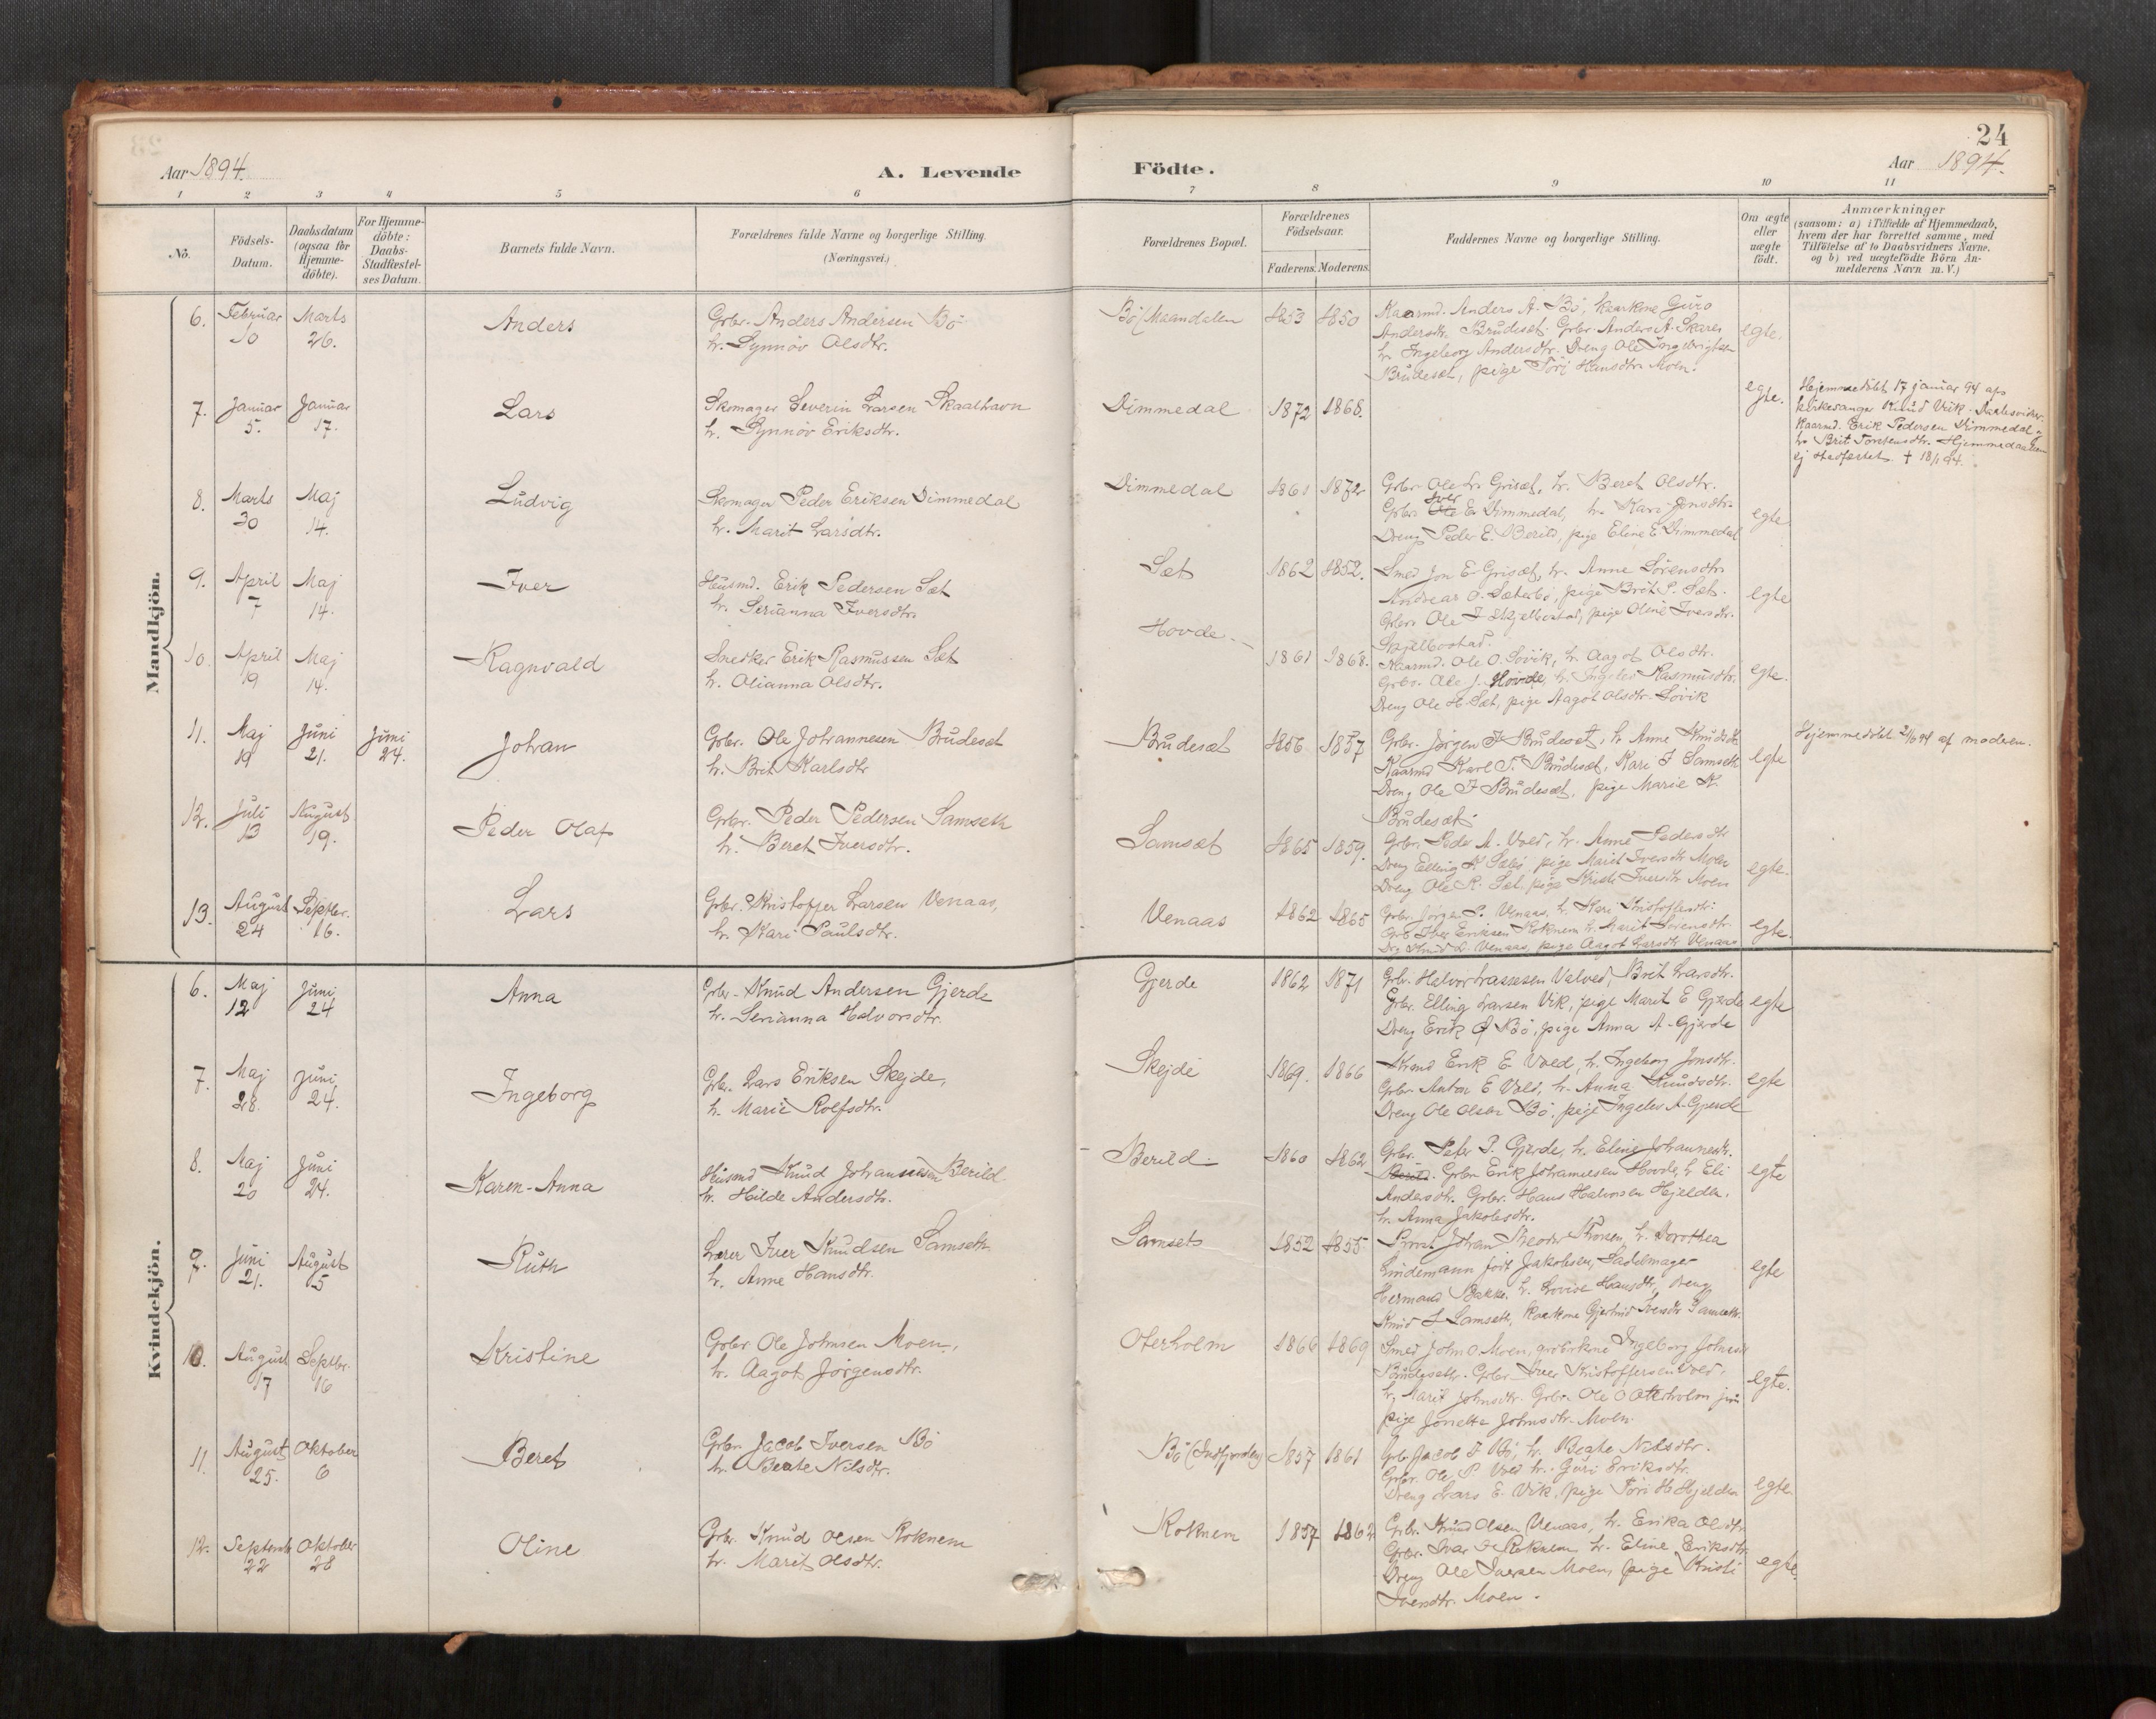 24
Aar 1894.
A. Levende
Födte.
Aar 1894.
1 2 3 4 5 6 7 8 9 10 11
No.
Födsels-
Datum.
Daabsdatum
(ogsaa for
Hjemme-
döbte).
For Hjemme-
döbte:
Daabs-
Stadfæstel-
ses Datum.
Barnets fulde Navn.
Forældrenes fulde Navne og borgerlige Stilling.
(Næringsvei.)
Forældrenes Bopæl.
Forældrenes
Födselsaar.
Faderens. Moderens.
Faddernes Navne og borgerlige Stilling.
Om ægte
eller
uægte
födt.
Anmærkninger
(saasom: a) i Tilfælde af Hjemmedaab,
hvem der har forrettet samme, med
Tilföielse af to Daabsvidners Navne.
og b) ved uægtefödte Börn An-
melderens Navn m. V.)
Mandkjön.
6. Februar 10 Marts 26. Anders
Grbr. Anders Andersen Bö
h. Synnöv Olsdtr.
Bö (Maandalen 1853 1850
Kaarmd. Anders A. Bö, kaarkone Guro
Andersdtr. Brudeset. Grbr. Anders A. Skaren
h. Ingeborg Andersdtr. Dreng Ole Ingebrigtsen
Brudeset, pige Töri Hansdtr. Moen.
egte.
7. Januar 5. Januar 17. Lars
Skomager Severin Larsen Skaalhavn
h. Synnöv Eriksdtr.
Dimmedal 1872 1868.
egte.
Hjemmedöbt 17 januar 94 af
kirkesanger Knud Vik. Daabsvidner:
Kaarmd. Erik Pedersen Dimmedal og
h. Brit Torstensdtr. Hjemmedaaben
ej stadfæstet. † 18/1 94.
8. Marts 30 Maj 14. Ludvig
Skomager Peder Eriksen Dimmedal
h. Marit Larsdtr.
Dimmedal 1861 1872
Grbr. Ole L. Griset, h. Beret Olsdtr.
Grbr. Iver E. Dimmedal, h. Kari Jensdtr.
Dreng Peder E. Berild, pige Eline E Dimmedal
egte
9. April 7 Maj 14. Iver
Husmd. Erik Pedersen Set
h. Serianna Iversdtr.
Set 1862 1852.
Smed Jon E. Griset, h. Anne Sörensdtr.
Andreas O. Sæterbö, pige Brit P. Set.
Grbr. Ole I Skjelbostad, pige Oline Iversdtr.
Skjelbostad.
egte
10. April 19 Maj 14. Ragnvald
Snedker Erik Rasmussen Set
h. Olianna Olsdtr.
Hovde. 1861 1868.
Kaarmd. Ole O. Sövik, h. Aagot Olsdtr.
Grbr. Ole J. Hovde, h. Ingeles Rasmusdtr.
Dreng Ole H. Set, pige Aagot Olsdtr. Sövik
egte.
11. Maj 19 Juni 21. Juni 24. Johan
Grbr. Ole Johannesen Brudeset
h. Brit Karlsdtr
Brudeset 1856 1857
Grbr. Jörgen J. Brudeset, h. Anne Knudsdtr.
Kaarmd Karl T. Brudeset, Kari I Samseth
Dreng Ole J Brudeset, pige Marie K.
Brudeset.
egte
Hjemmedöbt 21/6 94 af moderen.
12. Juli 13 August 19. Peder Olaf
Grbr. Peder Pedersen Samseth
h. Beret Iversdtr.
Samset 1865 1859.
Grbr. Peder A. Vold, h. Anne Pedersdtr
Dreng Elling K Sæbö, pige Marit Iversdtr Moen
Dreng Ole R. Set, pige Kristi Iversdtr Moen
egte.
13. August 24 Septbr. 16. Lars
Grbr. Kristoffer Larsen Venaas,
h. Kari Paulsdtr.
Venaas 1862 1865
Grbr. Jörgen P. Venaas, h. Kari Kristoffersdtr.
Grbr. Iver Eriksen Roknem h. Marit Sörensdtr.
Drg Knud L. Venaas, pige Aagot Larsdtr Venaas
egte.
Kvindekjön.
6. Maj 12 Juni 24 Anna
Grbr. Knud Andersen Gjerde
h. Serianna Halvorsdtr.
Gjerde 1862 1871
Grbr. Halvor Lassesen Velved, Brit Larsdtr.
Grbr. Elling Larsen Vik, pige Marit E Gjerde
Dreng Erik A Bö, pige Anna A. Gjerde
egte
7. Maj 28. Juni 24. Ingeborg
Grbr. Lars Eriksen Skejde,
h. Marie Rolfsdtr.
Skejde 1869. 1866
Strmd Erik E Vold, h. Ingeborg Jonsdtr.
Grbr. Anton E Vold, h. Anna Knudsdtr.
Dreng Ole Olsen Bö, pige Ingeles A. Gjerde
egte
8. Maj 20 Juni 24. Karen-Anna
Husmd Knud Johannesen Berild
h. Hilde Andersdtr.
Berild 1860 1862
Grbr. Peter P. Gjerde, h. Eline Johannesdtr.
Berild. Grbr. Erik Johannesen Hovde, h. Eli
Andersdtr. Grbr. Hans Halvorsen Hjelden.
h. Anna Jakobsdtr.
egte
9. Juni 21. August 5 Ruth
Lærer Iver Knudsen Samseth
h. Anne Hansdtr.
Samset 1852 1855
Provst Johan Theodor Thorsen, h. Dorothea
Lindemann föd Jakobsen, Sadelmager
Hermand Bakke, h. Lovise Hansdtr, Dreng
Knud I. Samseth, Kaarkone Gjertrud Iversdtr Samseth.
egte
10. August 17 Septbr. 16 Kristine
Grbr Ole Johnsen Moen,
h. Aagot Jörgensdtr.
Oterholm 1866 1869
Smed John O. Moen, grbrkone Ingeborg Johnsdtr
Brudeseth. Grbr. Iver Kristoffersen Vold,
h. Marit Johnsdtr. Grbr. Ole O Oterholm jun
pige Jonetta Johnsdtr. Moen.
egte.
11. August 25. Oktober 6 Beret
Grbr. Jacob Iversen Bö
h. Beate Nilsdtr.
Bö (Indfjorden) 1857 1861
Grbr Jacob J Bö, h. Beate Nilsdtr.
Grbr. Ole P. Vold h. Guri Eriksdtr.
Dreng Lars E. Vik, pige Töri H. Hjelden
egte.
12. Septemb 22 Oktober 28 Oline
Grbr. Knud Olsen Roknem
h. Marit Olsdtr.
Roknem 1857 1862
Grbr. Knud Olsen Venaas, h. Erika Olsdtr.
Grbr. Ivar O Roknem h. Eline Eriksdtr.
Dreng Ole Iversen Moen, pige Kristi
Iversdtr. Moen.
egte.